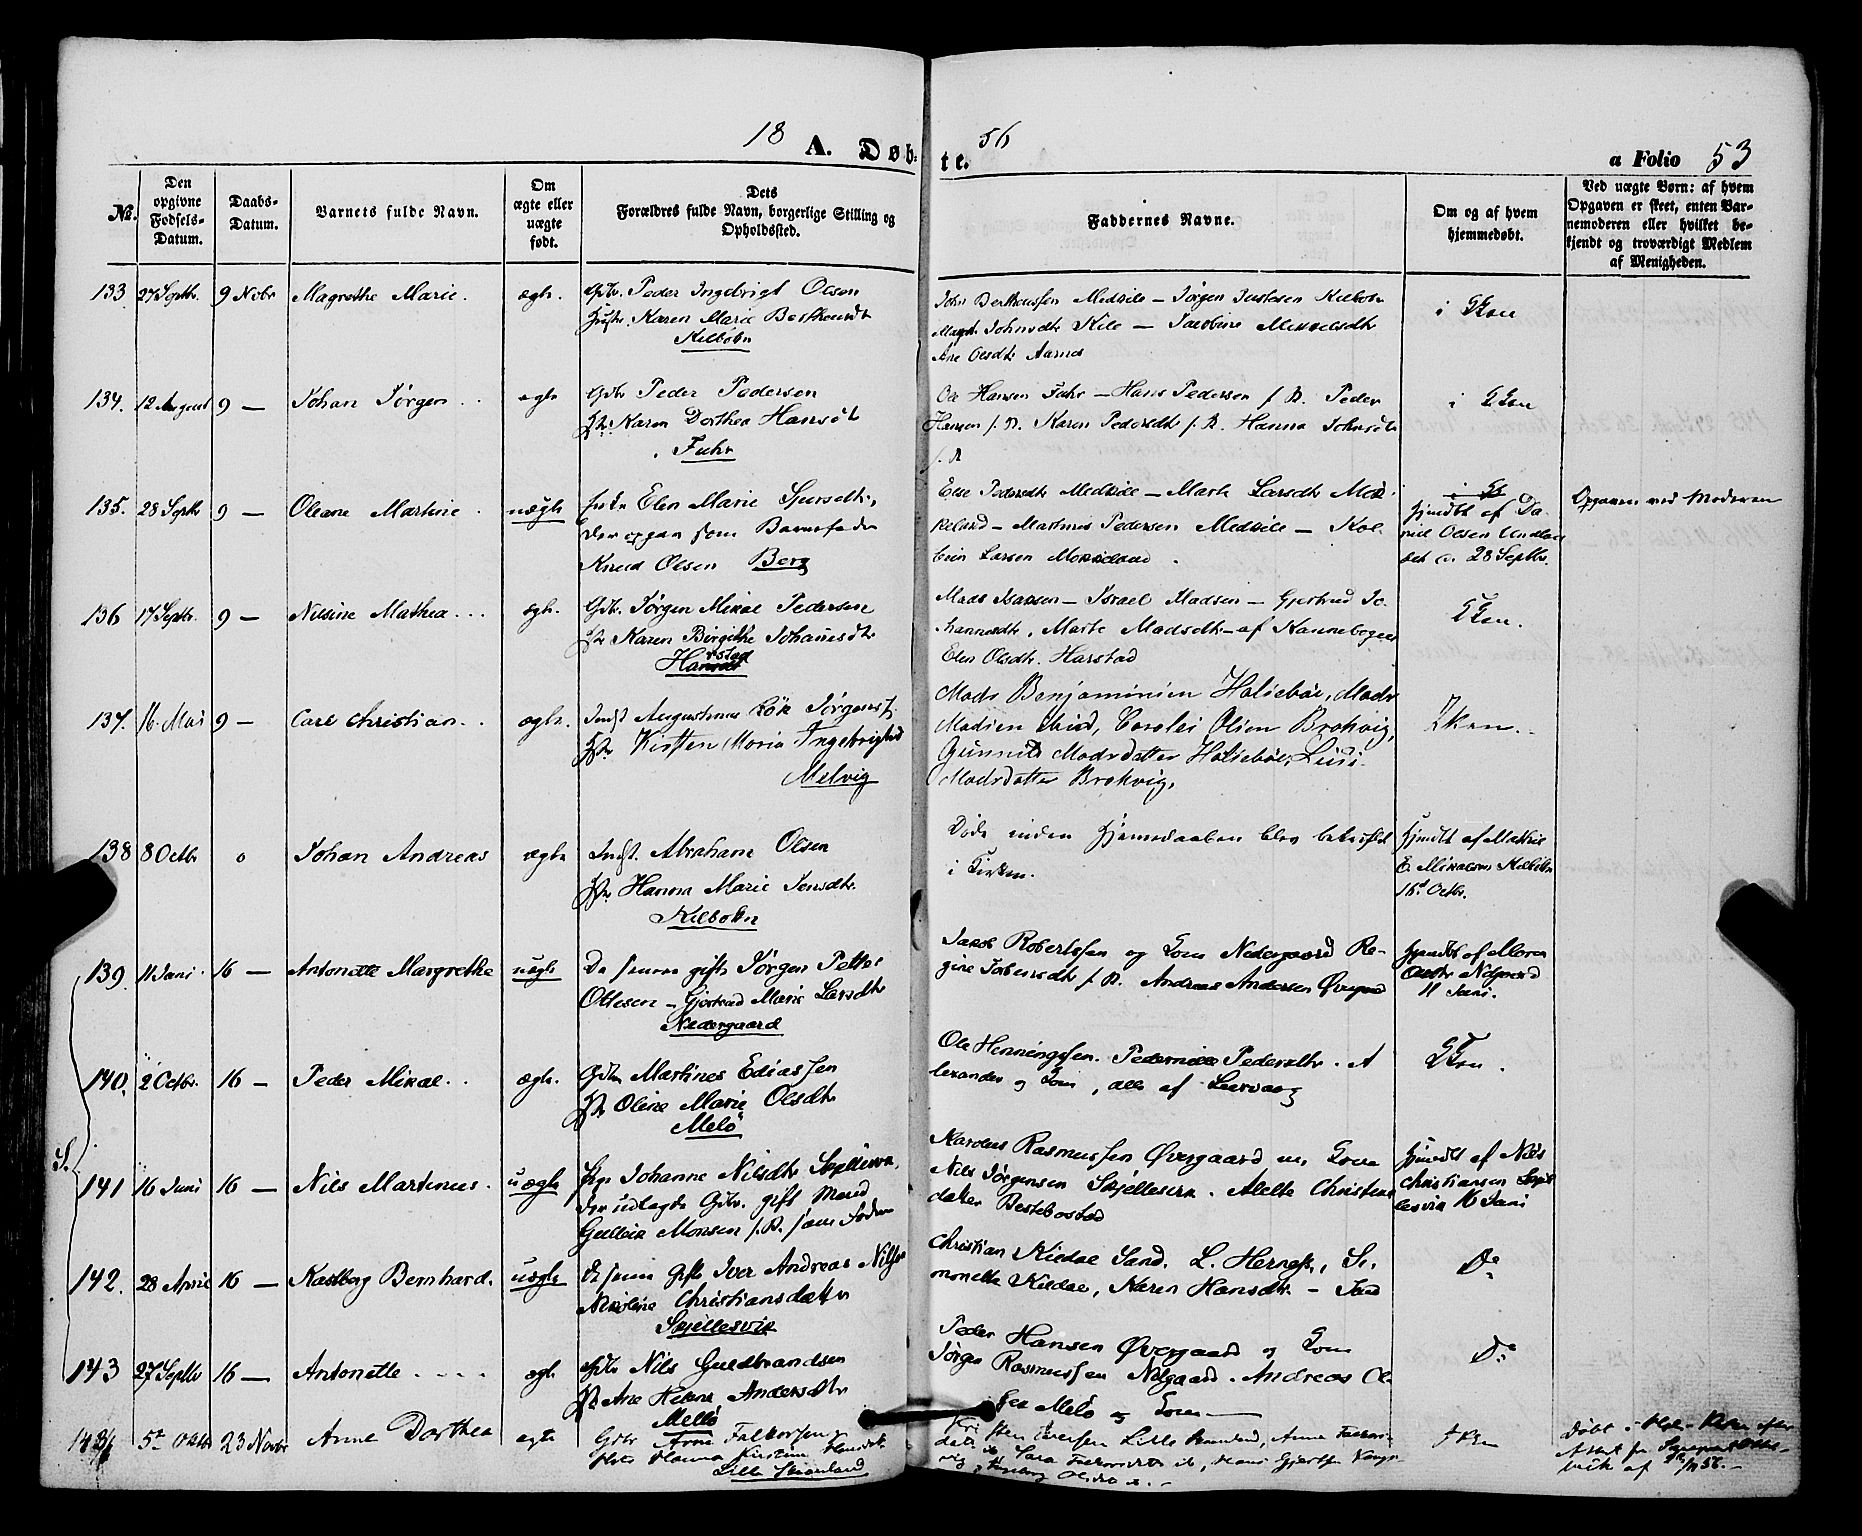 18 A. Døb- te. 56 a Folio 53
No. Den opgivne Fødsels-Datum. Daabs-Datum. Barnets fulde Navn. Om ægte eller uægte født. Dets Forældres fulde Navn, borgerlige Stilling og Opholdssted. Faddernes Navne. Om og af hvem hjemmedøbt. Ved uægte Børn: af hvem Opgaven er skeet, enten Barnemoderen eller hvilket bekjendt og troværdigt Medlem af Menigheden.
133 27 Septbr. 9 Novbr Magrethe Marie. ægte. Gbr. Peder Ingebrigt Olsen
Hustr. Karen Marie Bertheusdt
Kilbotn
John Bertheussen Medkile – Jørgen Justesen Kilbotn
Magrt. Johnsdtr Kile – Jacobine Mikkelsdtr
Ane Olsdtr Aarnes
i Kken
134. 12 August 9 – Johan Jørgen ægte Gbr Peder Pedersen
H. Karen Dorthea Hansdtr
Fuhr
Ole Hansen Fuhr – Hans Pedersen f. B. Peder
Hansen f. B. Karen Pedersdtr f. B. Hanna Johnsdtr
f. B
i Kken
135. 28 Septbr 9 – Oleane Martine uægte Elen Marie Sjursdtr,
der opgav som Barnefader
Knud Olsen Berg
Else Pedersdtr Medkile – Marte Larsdtr Mek-
keland – Martines Pedersen Medkile – Kol-
bein Larsen Mækkeland
Hjemdbt af Da-
niel Olsen Undlan-
det d. 28 Septbr.
Opgaven ved Moderen
136 17 Septbr. 9 – Nilsine Mathea ægte. Gbr. Jørgen Mikal Pedersen
H. Karen Birgithe Johansdtr
Harstad
Mads Isaksen – Israel Madsen – Gjertrud Jo-
hannesdtr, Marte Madsdtr – af Kannebogen
Elen Olsdtr. Harstad
Kken.
137. 16. Mai 9 – Carl Christian ægte. Indst Augustinus Løk Jørgensen
H. Kirsten Maria Ingebrigtsd
Melvig
Mads Benjaminsen Halsebøe, Mads
Madsen ibid, Carolus Olsen Brokvig,
Gunnild Madsdatter Halsebøe, Lusi
Madsdatter Brokvig,
Kken.
138 8 Octbr 0 Johan Andreas ægte Indst. Abraham Olsen
H. Hanna Marie Jensdtr.
Kilbotn
Døde inden Hjemmedaaben blev bekræftet
i Kirken.
Hjemdbt af Mathis
E. Mikalsen Kilbotn
16d Octbr.
139 11 Juni 16 – Antonette Margrethe uægte De senere gifte Jørgen Petter
Ottesen – Gjertrud Marie Larsdtr
Nedergaard
Jakob Robertssen og Kone Nedergaard Re-
gine Torbersdtr f. B. Andreas Andersen Øvrgaard
Hjemdbt af Maren
Nedgaard
11 Juni.
140. 2 Octbr. 16 – Peder Mikal ægte. Gbr Martines Eliassen
H. Oline Marie Olsdtr
Melø
Ole Henningssen. Pedernille Pedersdtr. A
lexander og Kone, alle af Leervaag
Kken.
S. 141 16 Juni 16 – Nils Martinus. uægte Pige Johanne Nilsdtr Skjellesvik,
der udlagde Gbr. gift Mand
Gulleik Monsen f. B. som Fader
Karolus Rasmussen Øvergaard m. Kone
Nils Jørgensen Skjellesvik. Alette Christens
datter Bestebostad
Hjemdbt af Nils
Christiansen Skjel
lesvik 16 Juni
142. 28 April 16 – Kastberg Bernhard. uægte De senere gifte Iver Andreas Nilsen
Nikoline Christiansdatter
Skjellesvik
Christian Kildal Sand. L. Hernæs, Si-
monette Kildal, Karen Hansdtr – Sand
Do
143 27 Septbr 16 – Antonette ægte Gbr Nils Guldbrandsen
H. Ane Helene Andersdtr
Melø
Peder Hansen Øvergaard og Kone
Jørgen Rasmussen Nedgaard. Andreas Ol-
sen Melø og Kone
Do
144 5t Oktbr 23 Novbr Anne Dorthea ægte Gbr Arne Falkorsen
Hstr Hanna Kirstine Hansdtr
Lille Skaanland
Iversen Lille Skaanland, Anna
Kken
Døbt i Kirken efter